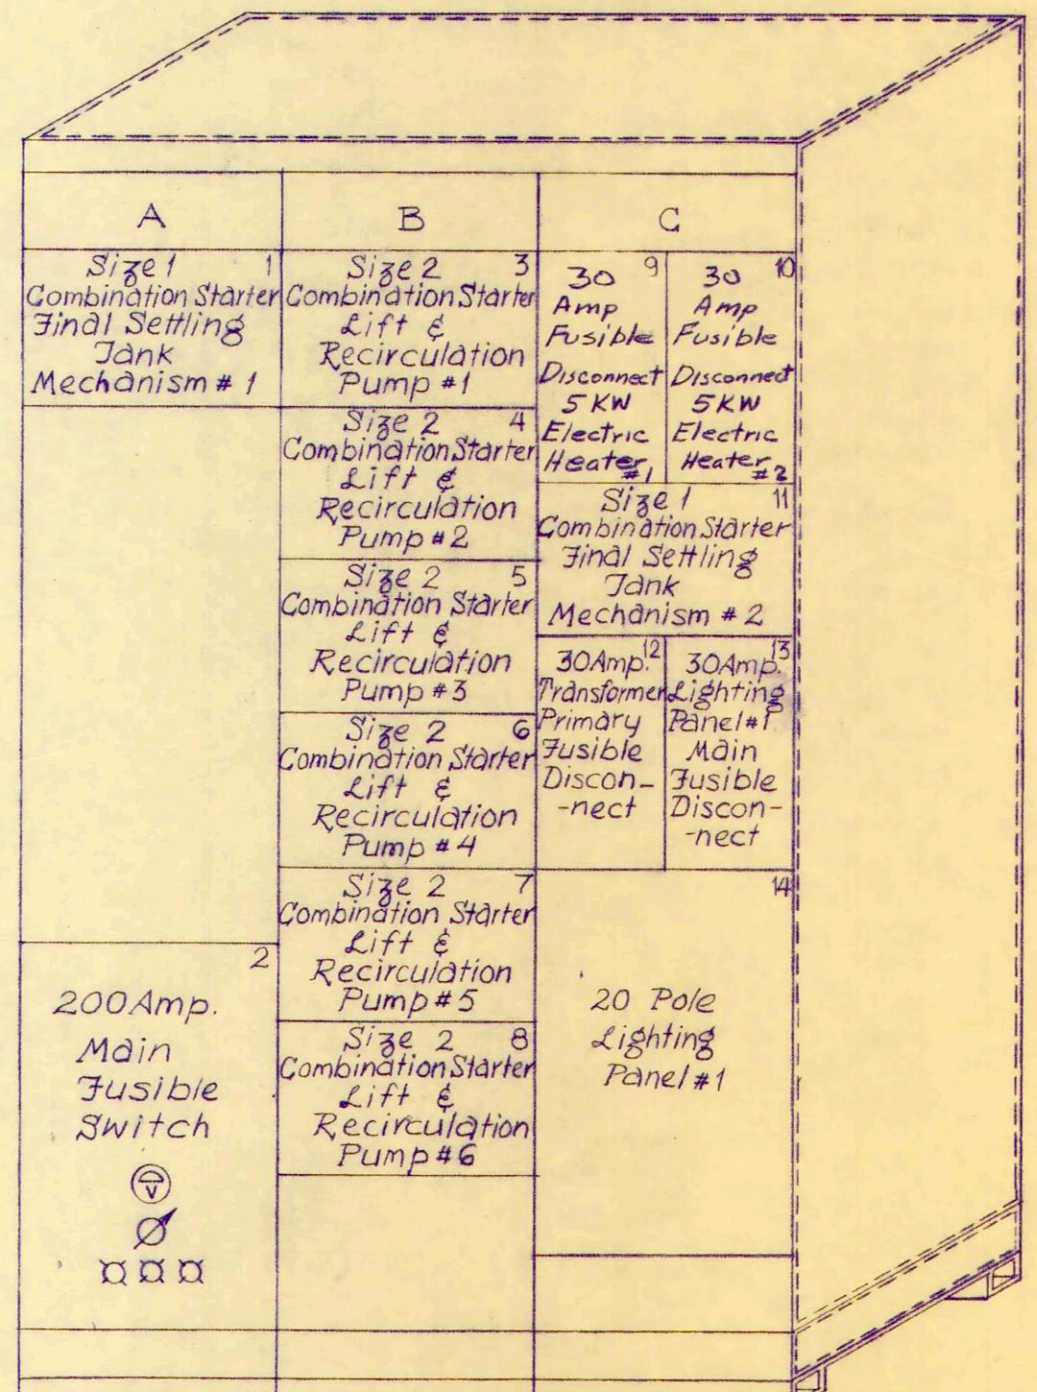 A
B
C
Size 1 1
Combination Starter
Final Settling
Tank
Mechanism # 1
2
200 Amp.
Main
Fusible
Switch
V
Size 2 3
Combination Starter
Lift &
Recirculation
Pump #1
Size 2 4
Combination Starter
Lift &
Recirculation
Pump #2
Size 2 5
Combination Starter
Lift &
Recirculation
Pump #3
Size 2 6
Combination Starter
Lift &
Recirculation
Pump #4
Size 2 7
Combination Starter
Lift &
Recirculation
Pump #5
Size 2 8
Combination Starter
Lift &
Recirculation
Pump #6
30 9
Amp
Fusible
Disconnect
5 KW
Electric
Heater #1
30 10
Amp
Fusible
Disconnect
5 KW
Electric
Heater #2
Size 1 11
Combination Starter
Final Settling
Tank
Mechanism # 2
30 Amp. 12
Transformer
Primary
Fusible
Discon-
-nect
30 Amp. 13
Lighting
Panel #1
Main
Fusible
Discon-
-nect
14
20 Pole
Lighting
Panel #1